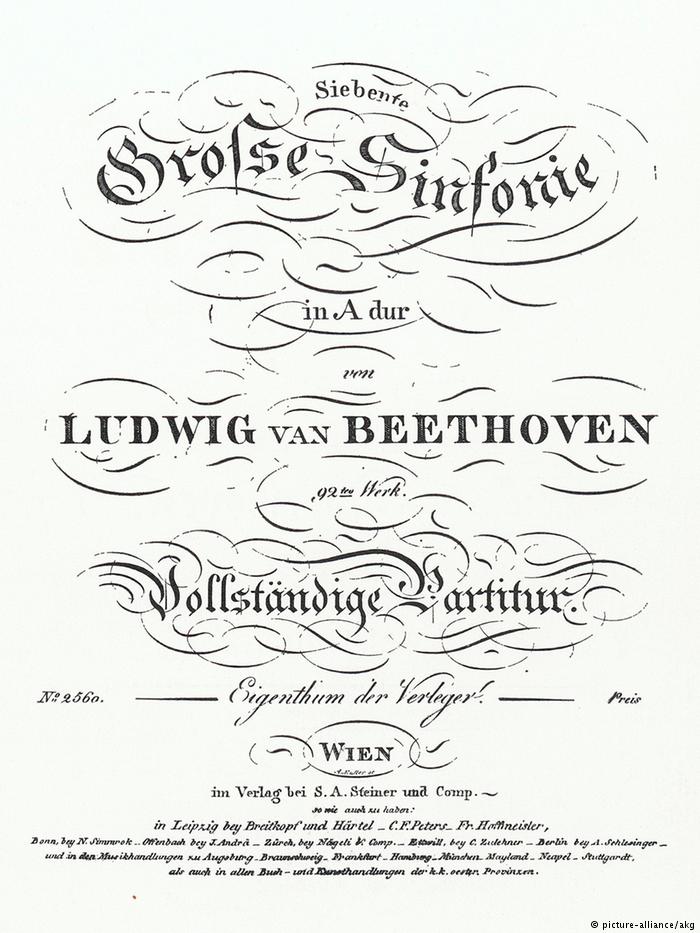 Siebente
Grosse Sinfonie
in A dur
von
LUDWIG VAN BEETHOVEN
92tes Werk.
Vollständige Partitur.
No. 2560. Eigenthum der Verleger. Preis
WIEN
im Verlag bei S. A. Steiner und Comp.
so wie auch zu haben:
in Leipzig bey Breitkopf und Härtel _ C. F. Peters _ Fr. Hoffmeister,
Bonn, bey N. Simmrok _ Offenbach bey J. André _ Zürch, bey Nägeli & Comp. _ bey C. Zulehner _ Berlin bey A. Schlesinger _
und in den Musikhandlungen zu Augsburg _ Braunschweig _ Frankfurt _ Hamburg _ München _ Mayland _ Neapel _ Stuttgardt,
als auch in allen Buch_ und Kunsthandlungen der k.k. oester. Provinzen.
© picture-alliance/akg